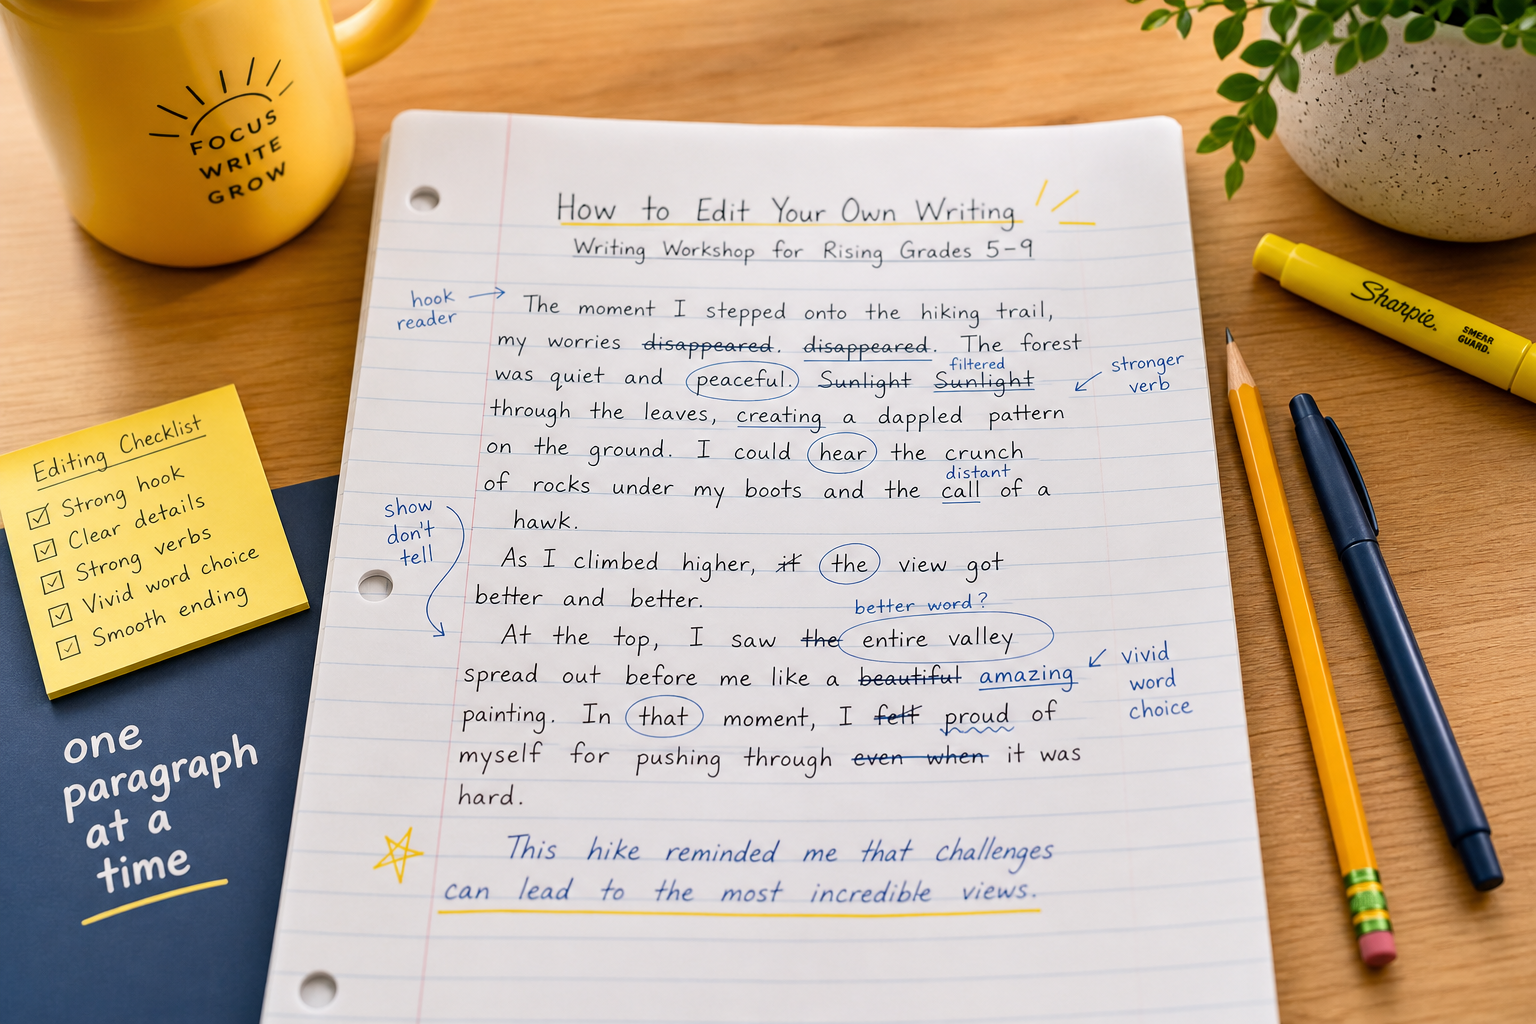 FOCUS
WRITE
GROW
How to Edit Your Own Writing
Writing Workshop for Rising Grades 5-9
hook
reader
The moment I stepped onto the hiking trail,
my worries disappeared. disappeared. The forest
filtered
was quiet and peaceful. Sunlight Sunlight
stronger
verb
through the leaves, creating a dappled pattern
on the ground. I could hear the crunch
distant
of rocks under my boots and the call of a
hawk.
show
don't
tell
As I climbed higher, it the view got
better and better.
better word?
At the top, I saw the entire valley
spread out before me like a beautiful amazing
vivid
word
choice
painting. In that moment, I felt proud of
myself for pushing through even when it was
hard.
This hike reminded me that challenges
can lead to the most incredible views.
Editing Checklist
Strong hook
Clear details
Strong verbs
Vivid word choice
Smooth ending
one
paragraph
at a
time
Sharpie.
SMEAR
GUARD.